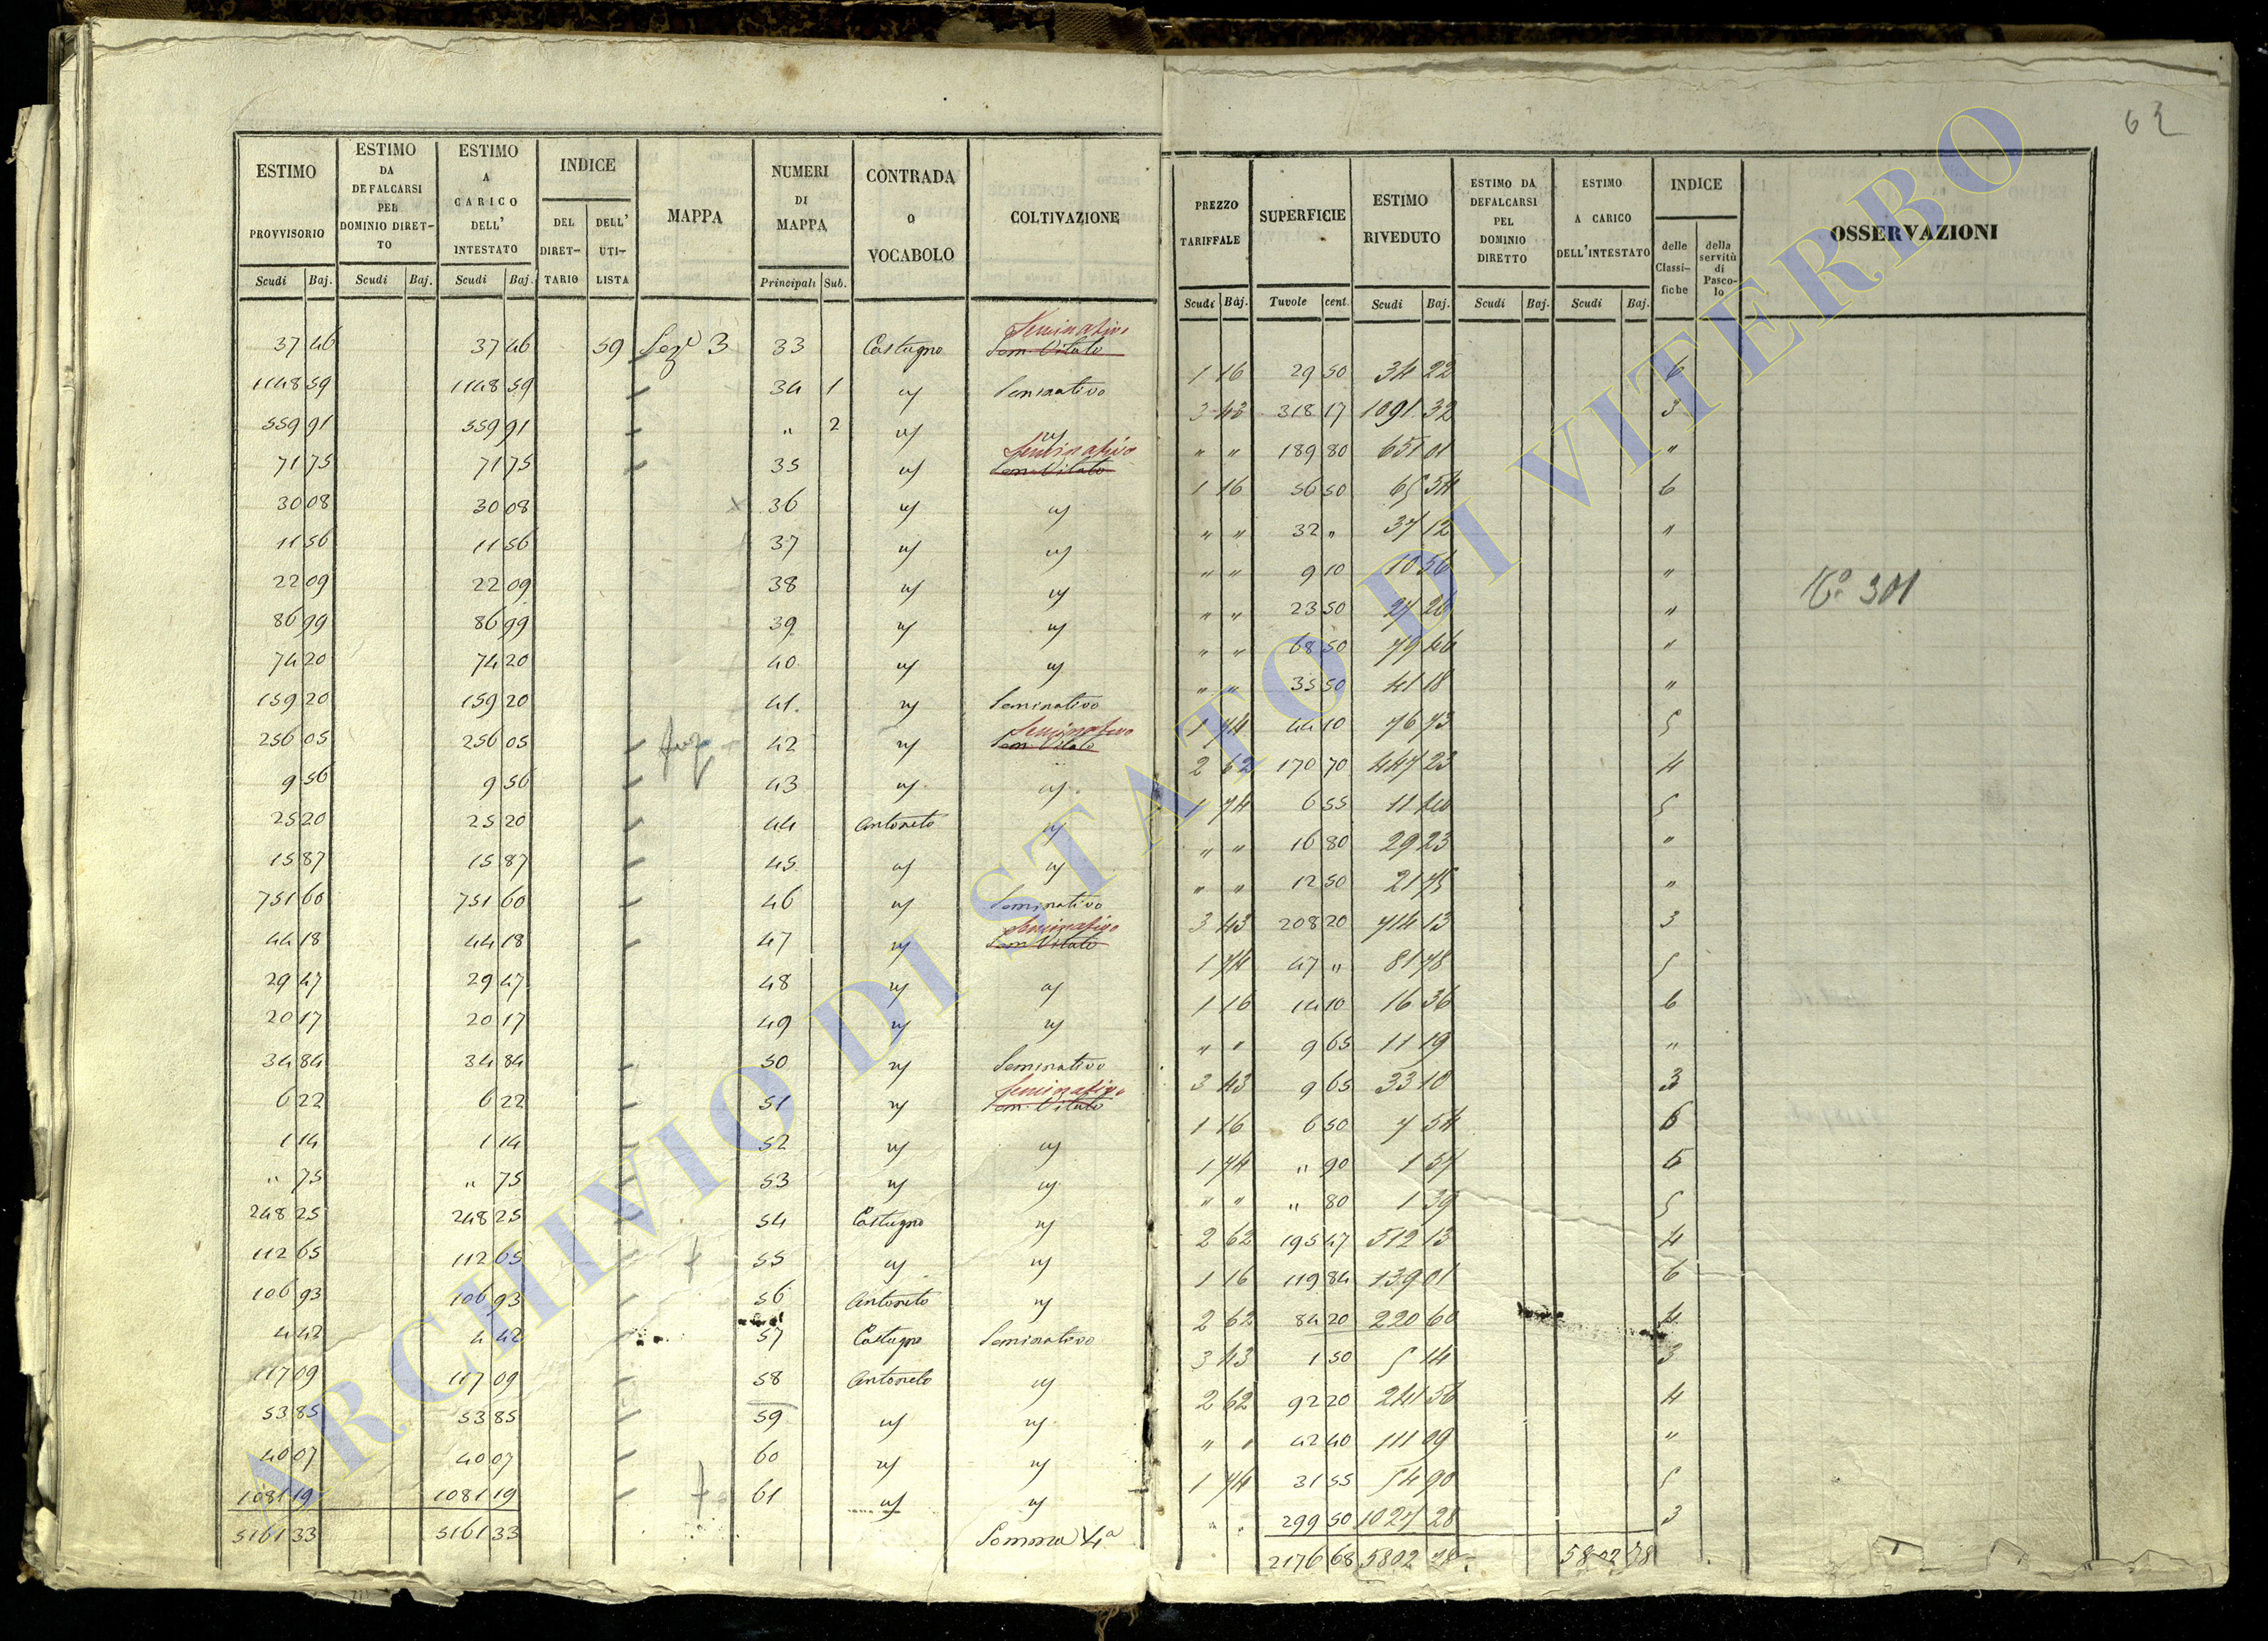 63
ESTIMO PROVVISORIO | ESTIMO DA DEFALCARSI PEL DOMINIO DIRETTO | ESTIMO A CARICO DELL' INTESTATO | INDICE | MAPPA | NUMERI DI MAPPA | CONTRADA O VOCABOLO | COLTIVAZIONE
DEL DIRETTARIO | DELL' UTILISTA
Scudi Baj. | Scudi Baj. | Scudi Baj. | Principali Sub.
37 46 | 37 46 | 59 | Sez.e 3 | 33 | Castugno | Sem. Vitato Seminativo
1148 59 | 1148 59 | 34 1 | " | Seminativo
559 91 | 559 91 | " 2 | " | "
71 75 | 71 75 | 35 | " | Sem. Vitato Seminativo
30 08 | 30 08 | 36 | " | "
11 56 | 11 56 | 37 | " | "
22 09 | 22 09 | 38 | " | "
86 99 | 86 99 | 39 | " | "
74 20 | 74 20 | 40 | " | "
159 20 | 159 20 | 41 | " | Seminativo
256 05 | 256 05 | 42 | " | Sem. Vitato Seminativo
9 56 | 9 56 | 43 | " | "
25 20 | 25 20 | 44 | Antoneto | "
15 87 | 15 87 | 45 | " | "
751 60 | 751 60 | 46 | " | Seminativo
44 18 | 44 18 | 47 | " | Sem. Vitato Seminativo
29 47 | 29 47 | 48 | " | "
20 17 | 20 17 | 49 | " | "
34 84 | 34 84 | 50 | " | Seminativo
6 22 | 6 22 | 51 | " | Sem. Vitato Seminativo
1 14 | 1 14 | 52 | " | "
" 75 | " 75 | 53 | " | "
248 25 | 248 25 | 54 | Castugno | "
112 65 | 112 65 | 55 | " | "
106 93 | 106 93 | 56 | Antoneto | "
4 42 | 4 42 | 57 | Castugno | Seminativo
117 09 | 117 09 | 58 | Antoneto | "
53 85 | 53 85 | 59 | " | "
40 07 | 40 07 | 60 | " | "
1081 19 | 1081 19 | 61 | " | "
5161 33 | 5161 33 | Somma 4a
PREZZO TARIFFALE | SUPERFICIE | ESTIMO RIVEDUTO | ESTIMO DA DEFALCARSI PEL DOMINIO DIRETTO | ESTIMO A CARICO DELL'INTESTATO | INDICE | OSSERVAZIONI
delle Classifiche | della servitù di Pascolo
Scudi Baj. | Tuvole cent. | Scudi Baj. | Scudi Baj. | Scudi Baj.
1 16 | 29 50 | 34 22 | 6
3 43 | 318 17 | 1091 32 | 3
" " | 189 80 | 651 01 | "
1 16 | 56 50 | 65 54 | 6
" " | 32 " | 37 12 | "
" " | 9 10 | 10 56 | "
No 301
" " | 23 50 | 27 26 | "
" " | 68 50 | 79 46 | "
" " | 35 50 | 41 18 | "
1 74 | 44 10 | 76 73 | 5
2 62 | 170 70 | 447 23 | 4
1 74 | 6 55 | 11 40 | 5
" " | 16 80 | 29 23 | "
" " | 12 50 | 21 75 | "
3 43 | 208 20 | 714 13 | 3
1 74 | 47 " | 81 78 | 5
1 16 | 14 10 | 16 36 | 6
" " | 9 65 | 11 19 | "
3 43 | 9 65 | 33 10 | 3
1 16 | 6 50 | 7 54 | 6
1 74 | " 90 | 1 57 | 5
" " | " 80 | 1 39 | 5
2 62 | 195 47 | 512 13 | 4
1 16 | 119 84 | 139 01 | 6
2 62 | 84 20 | 220 60 | 4
3 43 | 1 50 | 5 14 | 3
2 62 | 92 20 | 241 56 | 4
" " | 42 40 | 111 09 | "
1 74 | 31 55 | 54 90 | 5
" " | 299 50 | 1027 28 | 3
2176 68 | 5802 78 | 5802 78
ARCHIVIO DI STATO DI VITERBO